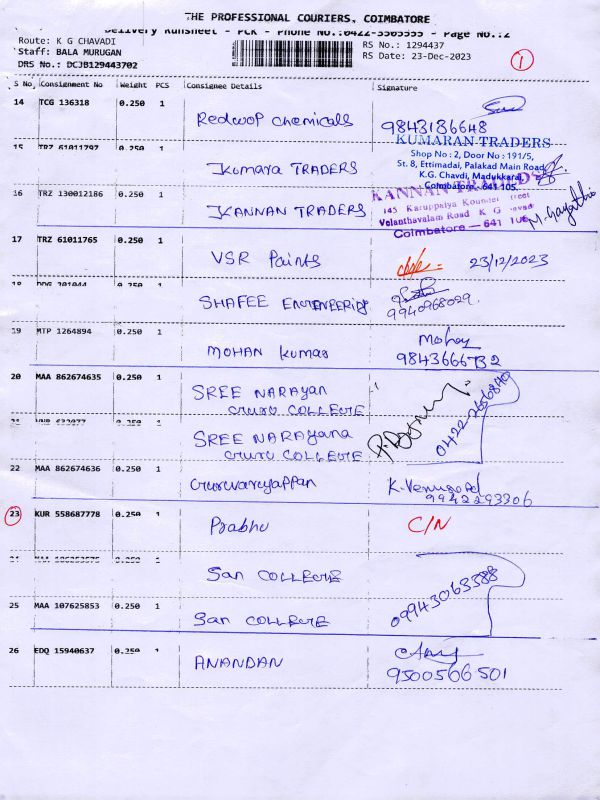 THE PROFESSIONAL COURIERS, COIMBATORE
Delivery Runsheet - PCK - Phone No.:0422-3505555 - Page No.:2
Route: K G CHAVADI
Staff: BALA MURUGAN
DRS No.: DCJB129443702
RS No.: 1294437
RS Date: 23-Dec-2023
1
S No Consignment No Weight PCS Consignee Details Signature
14 TCG 136318 0.250 1 Redwop chemicals
9843186648
15 TRZ 61011797 0.250 1 Kumara TRADERS
KUMARAN TRADERS
Shop No : 2, Door No : 191/5,
St. 8, Ettimadai, Palakad Main Road,
K.G. Chavdi, Madukkarai,
Coimbatore - 641 105.
16 TRZ 130012186 0.250 1 KANNAN TRADERS
KANNAN TRADERS
145 Karuppaiya Kounder Street
Velanthavalam Road K G Chavadi
Coimbatore — 641 105
M. Gayathri
17 TRZ 61011765 0.250 1 VSR Paints 23/12/2023
18 0.250 1 SHAFEE ENGINEERING
9940968029.
19 MTP 1264894 0.250 1 MOHAN Kumar Mohan
9843666732
20 MAA 862674635 0.250 1 SREE NARAYAN
GURU COLLEGE
0422-2656840
21 0.250 1 SREE NARAYANA
GURU COLLEGE
22 MAA 862674636 0.250 1 Guruvayuappan K. Venugopal
9942293306
23 KUR 558687778 0.250 1 Prabhu C/N
0.250 1 San COLLEGE
09943063388
25 MAA 107625853 0.250 1 San COLLEGE
26 EDQ 15940637 0.250 1 ANANDAN
9500566501